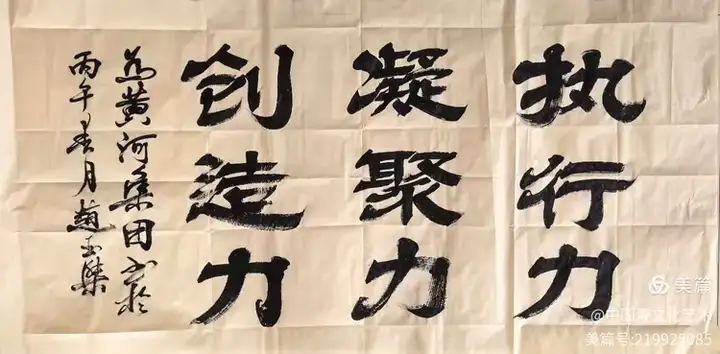 执行力
凝聚力
创造力
为黄河集团书於
丙午春月赵玉
美篇
美篇号:219925085